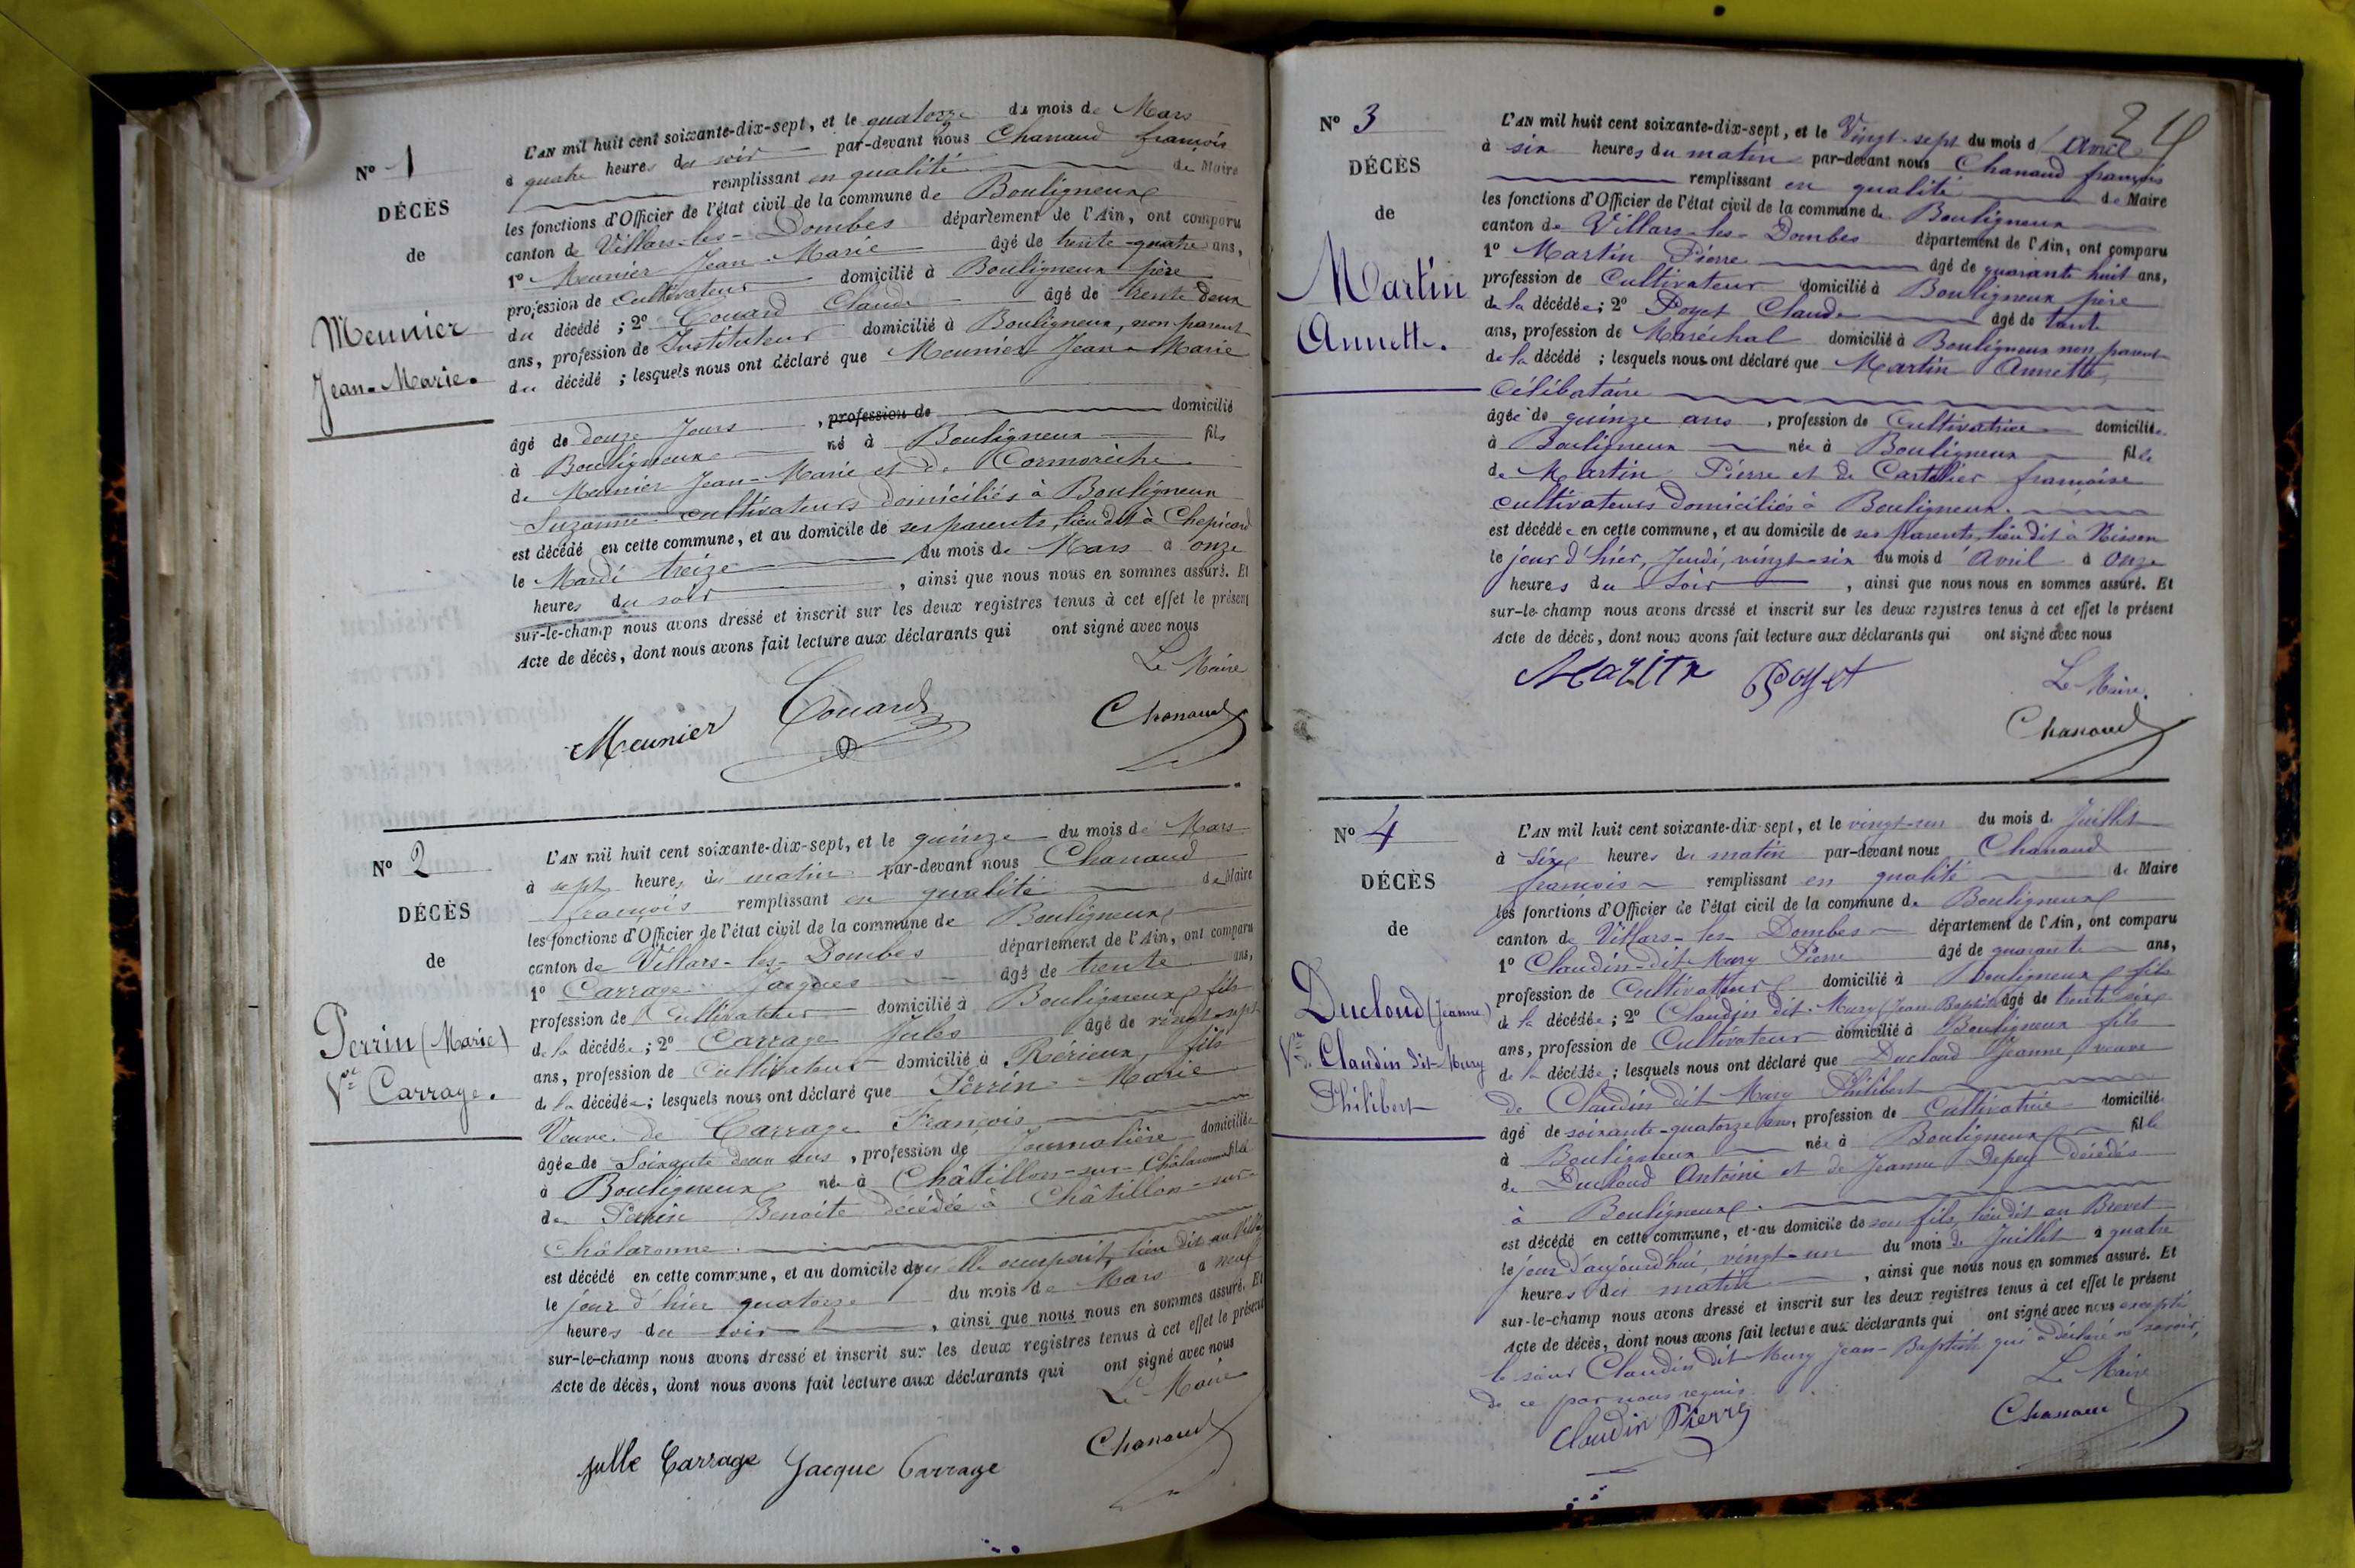 N° 1
DÉCÈS
de
Meunier
Jean-Marie.
L'AN mil huit cent soixante-dix-sept, et le quatorze du mois de Mars
à quatre heures du soir par-devant nous Chanaud françois
remplissant en qualité de Maire
les fonctions d'Officier de l'état civil de la commune de Bouligneux
canton de Villars-les-Dombes département de l'Ain, ont comparu
1° Meunier Jean-Marie âgé de trente-quatre ans,
profession de Cultivateur domicilié à Bouligneux père
du décédé ; 2° Couard Claude âgé de trente deux
ans, profession de Instituteur domicilié à Bouligneux, non parent
du décédé ; lesquels nous ont déclaré que Meunier Jean-Marie
âgé de douze Jours , profession de domicilié
à Bouligneux né à Bouligneux fils
de Meunier Jean-Marie et de Cormorèche
Suzanne cultivateurs domiciliés à Bouligneux
est décédé en cette commune, et au domicile de ses parents, lieu dit à Chepicard
le Mardi treize du mois de Mars à onze
heures du soir , ainsi que nous nous en sommes assuré. Et
sur-le-champ nous avons dressé et inscrit sur les deux registres tenus à cet effet le présent
Acte de décès, dont nous avons fait lecture aux déclarants qui ont signé avec nous
Le Maire
Meunier Couard Chanaud
N° 2
DÉCÈS
de
Perrin (Marie)
Vve Carrage.
L'AN mil huit cent soixante-dix-sept, et le quinze du mois de Mars
à sept heures du matin par-devant nous Chanaud
françois remplissant en qualité de Maire
les fonctions d'Officier de l'état civil de la commune de Bouligneux
canton de Villars-les-Dombes département de l'Ain, ont comparu
1° Carrage Jacques âgé de trente ans,
profession de Cultivateur domicilié à Bouligneux fils
de la décédée ; 2° Carrage Jules âgé de vingt-sept
ans, profession de Cultivateur domicilié à Rérieux, fils
de la décédée ; lesquels nous ont déclaré que Perrin Marie
Veuve de Carrage François
âgée de Soixante deux ans , profession de Journalière domiciliée
à Bouligneux née à Châtillon-sur-Châlaronne fille
de Perrin Benoite décédée à Châtillon-sur-
Châlaronne.
est décédé en cette commune, et au domicile qu'elle occupait, lieu dit au Village
le jour d'hier quatorze du mois de Mars à neuf
heures du soir , ainsi que nous nous en sommes assuré. Et
sur-le-champ nous avons dressé et inscrit sur les deux registres tenus à cet effet le présent
Acte de décès, dont nous avons fait lecture aux déclarants qui ont signé avec nous
Le Maire
Julle Carrage Jacque Carrage Chanaud
24
N° 3
DÉCÈS
de
Martin
Annette.
L'AN mil huit cent soixante-dix-sept, et le Vingt-sept du mois d'Avril
à six heures du matin par-devant nous Chanaud françois
remplissant en qualité de Maire
les fonctions d'Officier de l'état civil de la commune de Bouligneux
canton de Villars-les-Dombes département de l'Ain, ont comparu
1° Martin Pierre âgé de quarante huit ans,
profession de Cultivateur domicilié à Bouligneux père
de la décédée ; 2° Poyet Claude âgé de trente
ans, profession de Maréchal domicilié à Bouligneux non parent
de la décédé ; lesquels nous ont déclaré que Martin Annette,
Célibataire
âgée de quinze ans , profession de Cultivatrice domiciliée
à Bouligneux née à Bouligneux fille
de Martin Pierre et de Cartellier françoise
cultivateurs domiciliés à Bouligneux.
est décédée en cette commune, et au domicile de ses parents, lieu dit à
le jour d'hier, Jeudi, vingt-six du mois d'Avril à onze
heures du soir , ainsi que nous nous en sommes assuré. Et
sur-le-champ nous avons dressé et inscrit sur les deux registres tenus à cet effet le présent
Acte de décès, dont nous avons fait lecture aux déclarants qui ont signé avec nous
Martin Poyet Le Maire.
Chanaud
N° 4
DÉCÈS
de
Ducloud (Jeanne)
Vve de Claudin dit-Mury
Philibert
L'AN mil huit cent soixante-dix-sept, et le vingt-un du mois de Juillet
à six heures du matin par-devant nous Chanaud
françois remplissant en qualité de Maire
les fonctions d'Officier de l'état civil de la commune de Bouligneux
canton de Villars-les-Dombes département de l'Ain, ont comparu
1° Claudin-dit-Mury Pierre âgé de quarante ans,
profession de Cultivateur domicilié à Bouligneux fils
de la décédée ; 2° Claudin dit-Mury (Jean-Baptiste) âgé de trente six
ans, profession de Cultivateur domicilié à Bouligneux fils
de la décédée ; lesquels nous ont déclaré que Ducloud Jeanne, veuve
de Claudin dit Mury Philibert
âgé de soixante-quatorze ans, profession de Cultivatrice domiciliée
à Bouligneux née à Bouligneux fille
de Ducloud Antoine et de Jeanne décédés
à Bouligneux.
est décédé en cette commune, et au domicile de son fils, lieu dit au Brevet
le jour d'aujourd'hui, vingt-un du mois de Juillet à quatre
heures du matin , ainsi que nous nous en sommes assuré. Et
sur-le-champ nous avons dressé et inscrit sur les deux registres tenus à cet effet le présent
Acte de décès, dont nous avons fait lecture aux déclarants qui ont signé avec nous excepté
le sieur Claudin dit Mury Jean-Baptiste qui a déclaré ne savoir,
de ce par nous requis. Le Maire
Claudin Pierre Chanaud